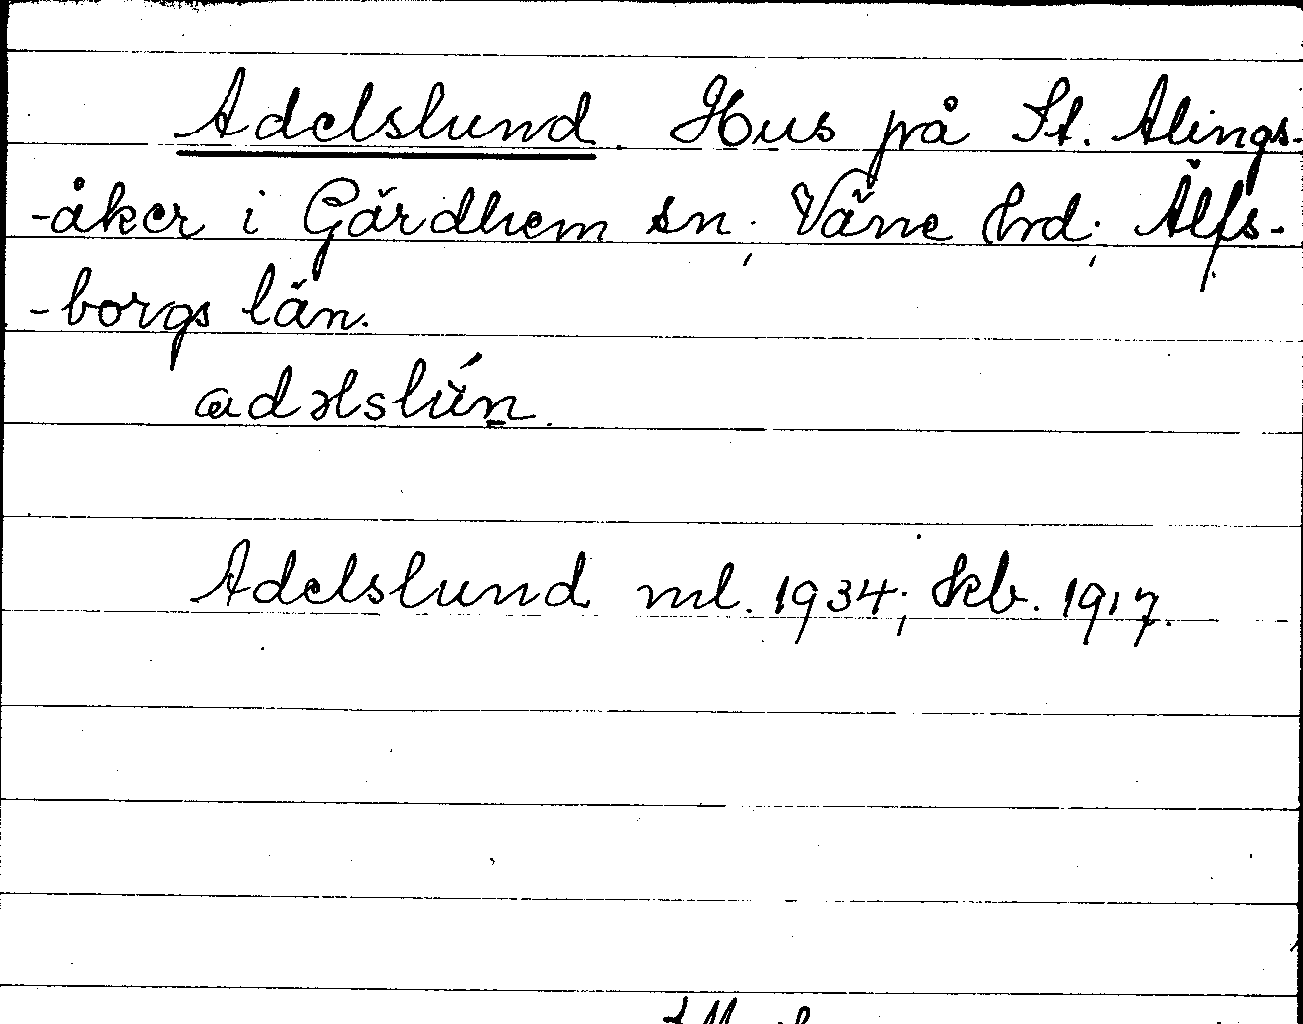 Adelslund. Hus på St. Alings-
-åker i Gärdhem sn; Väne hd; Älfs-
-borgs län.
adəlslún.
Adelslund ml. 1934; kb. 1917.